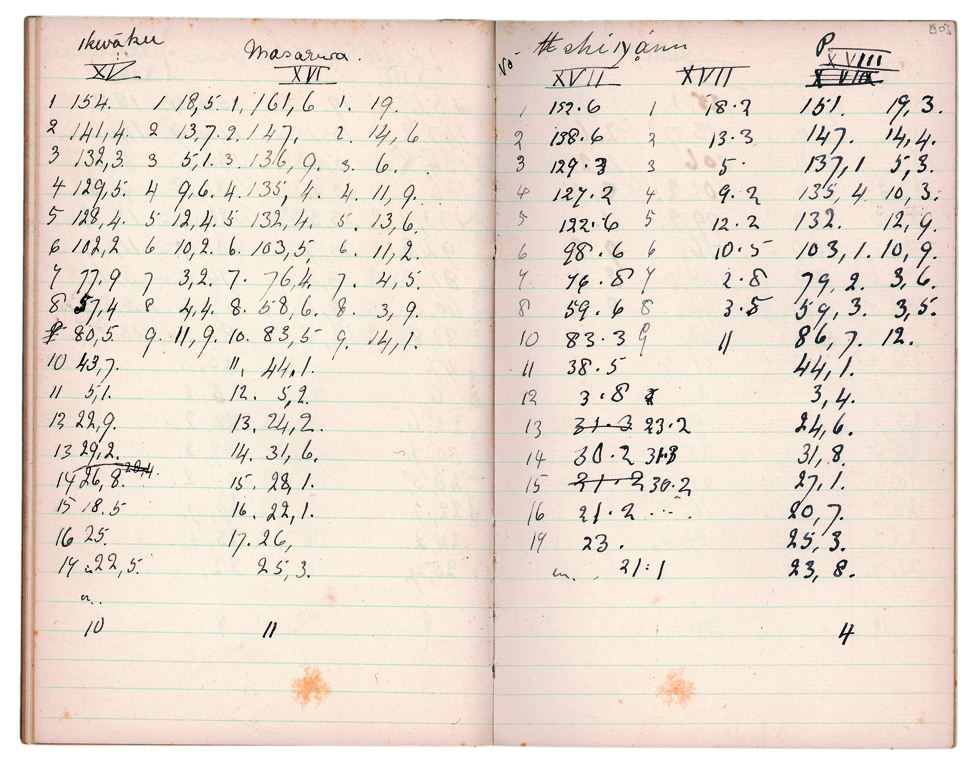 Ikwäku
XV
Masarwa.
XVI
1 154. 1 18,5. 1, 161,6 1. 19.
2 141,4. 2 13,7. 2. 147, 2. 14,6
3 132,3. 3 5,1. 3. 136,9. 3. 6.
4 129,5. 4 9,6. 4. 135,4. 4. 11,9.
5 128,4. 5 12,4. 5 132,4. 5. 13,6.
6 102,2 6 10,2. 6. 103,5, 6. 11,2.
7 77,9 7 3,2. 7. 76,4, 7. 4,5.
8 57,4 8 4,4. 8. 58,6. 8. 3,9.
9 80,5. 9. 11,9. 10. 83,5 9. 14,1.
10 43,7. 11, 44,1.
11 5,1. 12. 5,2.
12 22,9. 13. 24,2.
13 29,2. 14. 31,6.
14 26,8. 28,4. 15. 28,1.
15 18.5 16. 22,1.
16 25. 17. 26,
17 a 22,5. 25,3.
a..
10 11
503
XVII XVII
P
XVIII
1 152.6 1 18.2 151. 19,3.
2 138.6 2 13.3 147. 14,4.
3 129.3 3 5. 137,1 5,3.
4 127.2 4 9.2 135,4. 10,3.
5 122.6 5 12.2 132. 12,9.
6 98.6 6 10.5 103,1. 10,9.
7. 76.8 7 2.8 79,2. 3,6.
8 59.6 8 3.5 59,3. 3,5.
10 83.3 9 11 86,7. 12.
11 38.5 44,1.
12 3.8 3,4.
13 31.3 23.2 24,6.
14 30.2 31.3 31,8.
15 21.2 30.2 27,1.
16 21.2 ... 20,7.
19 23. 25,3.
21:1 23,8.
4